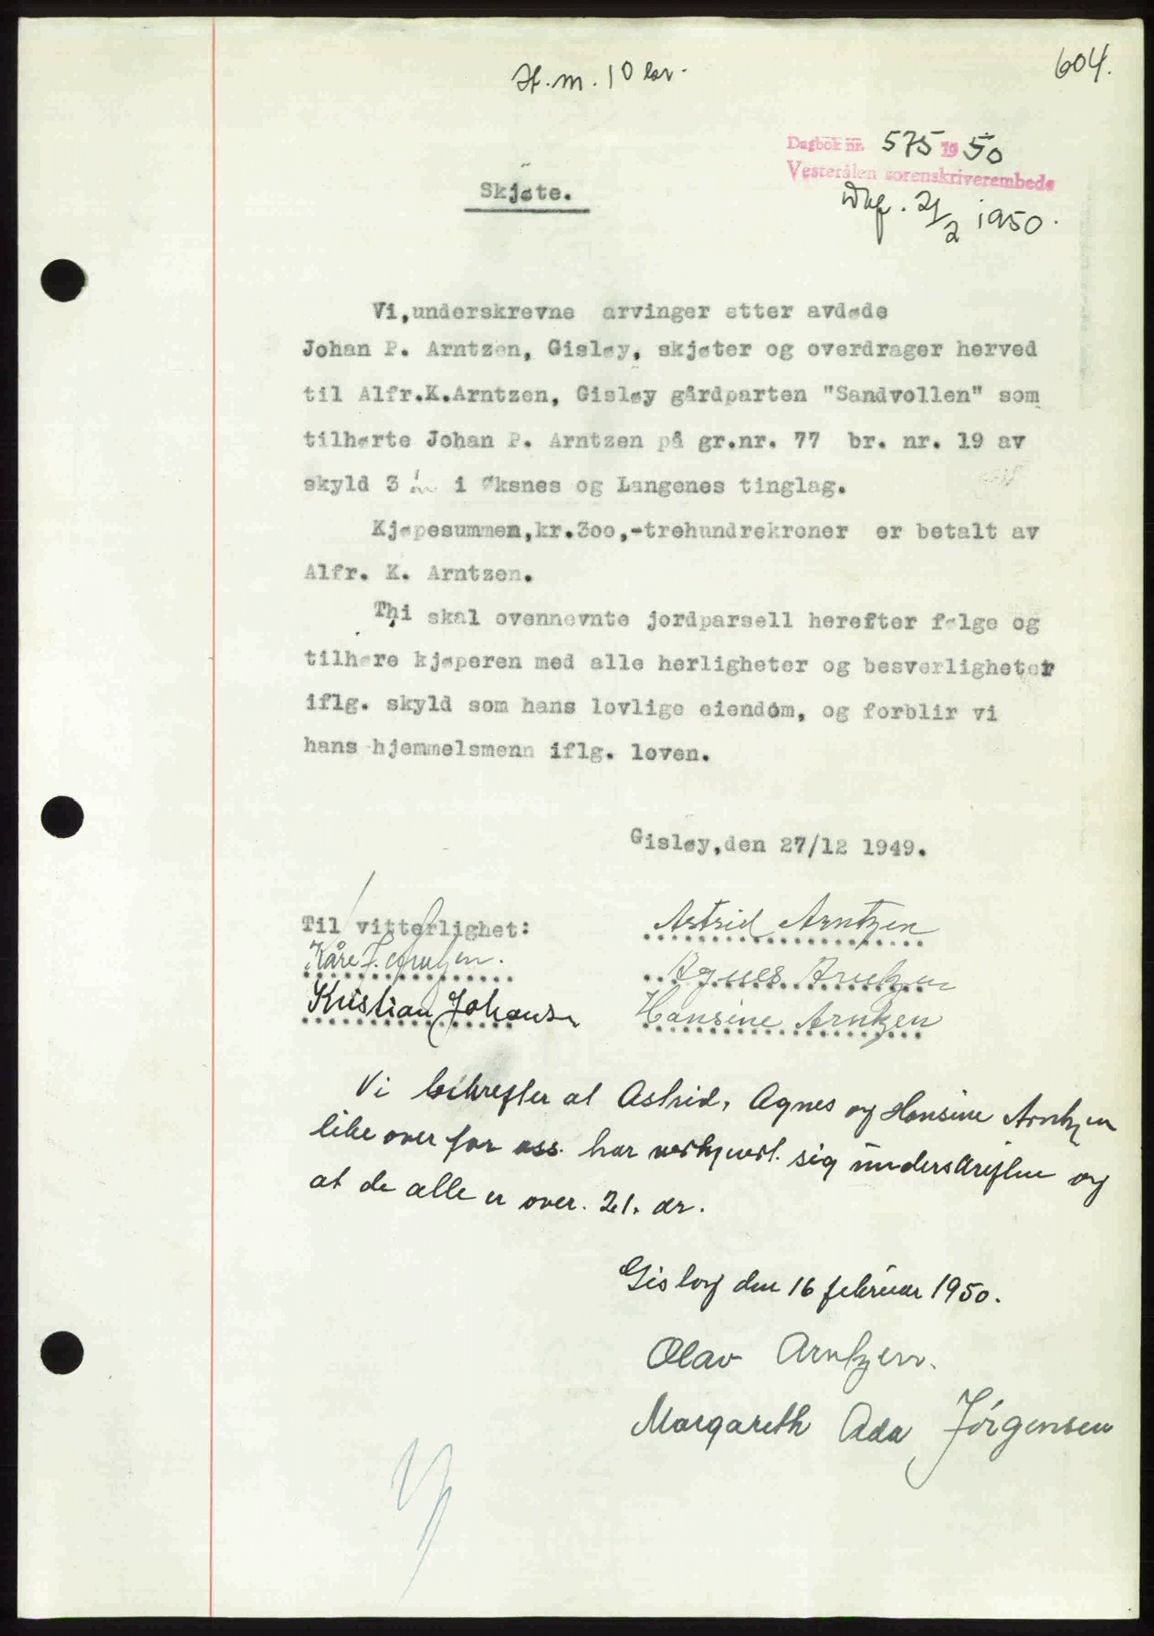 604.
St.m. 10 kr.
Dagbok nr. 575 1950
Vesterålen sorenskriverembede
Skjøte.
21/2 1950.
Vi,underskrevne arvinger etter avdøde
Johan P. Arntzen, Gisløy, skjøter og overdrager herved
til Alfr.K.Arntzen, Gisløy gårdparten "Sandvollen" som
tilhørte Johan P. Arntzen på gr.nr. 77 br. nr. 19 av
skyld 3 i Øksnes og Langenes tinglag.
Kjøpesummen,kr.300,-trehundrekroner er betalt av
Alfr. K. Arntzen.
Thi skal ovennevnte jordparsell herefter følge og
tilhøre kjøperen med alle herligheter og besverligheter
iflg. skyld som hans lovlige eiendom, og forblir vi
hans hjemmelsmenn iflg. loven.
Gisløy,den 27/12 1949.
Til vitterlighet:
Astrid Arntzen
Kåre
Agnes Arntzen
Kristian Johansen
Hansine Arntzen
Vi bekrefter at Astrid, Agnes og Hansine Arntzen
like over for oss. har sig underskriften og
at de alle er over. 21. år.
Gisløy den 16 februar 1950.
Olav Arntzen.
Margareth Ada Jørgensen